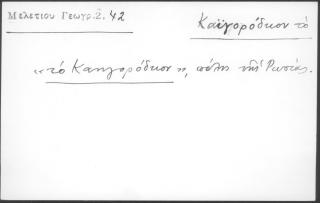 Μελετίου Γεωγρ. 2. 42
Καϊγορόδκιον τὸ
«τὸ Καιγορόδκιον», πόλις τῆς Ρωσίας.